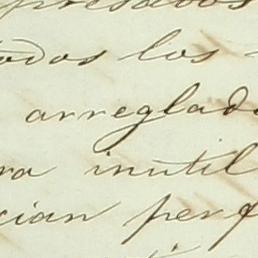 presados
todos los
arreglad
ra inutil
cian perf